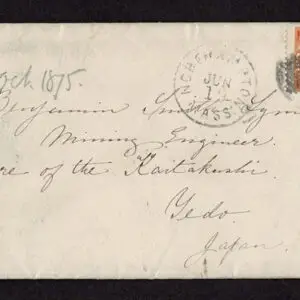 1875.
NORTHAMPTON
JUN
MASS.
Benjamin Smith
Mining Engineer
of the Kaitakushi
Yedo
Japan.